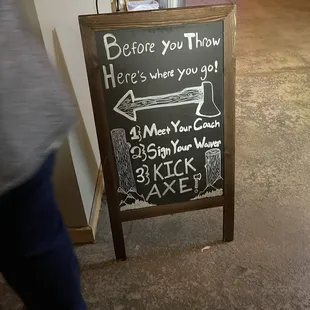 Before you Throw
Here's where you go!
1} Meet Your Coach
2} Sign Your Waiver
3} KICK
AXE!